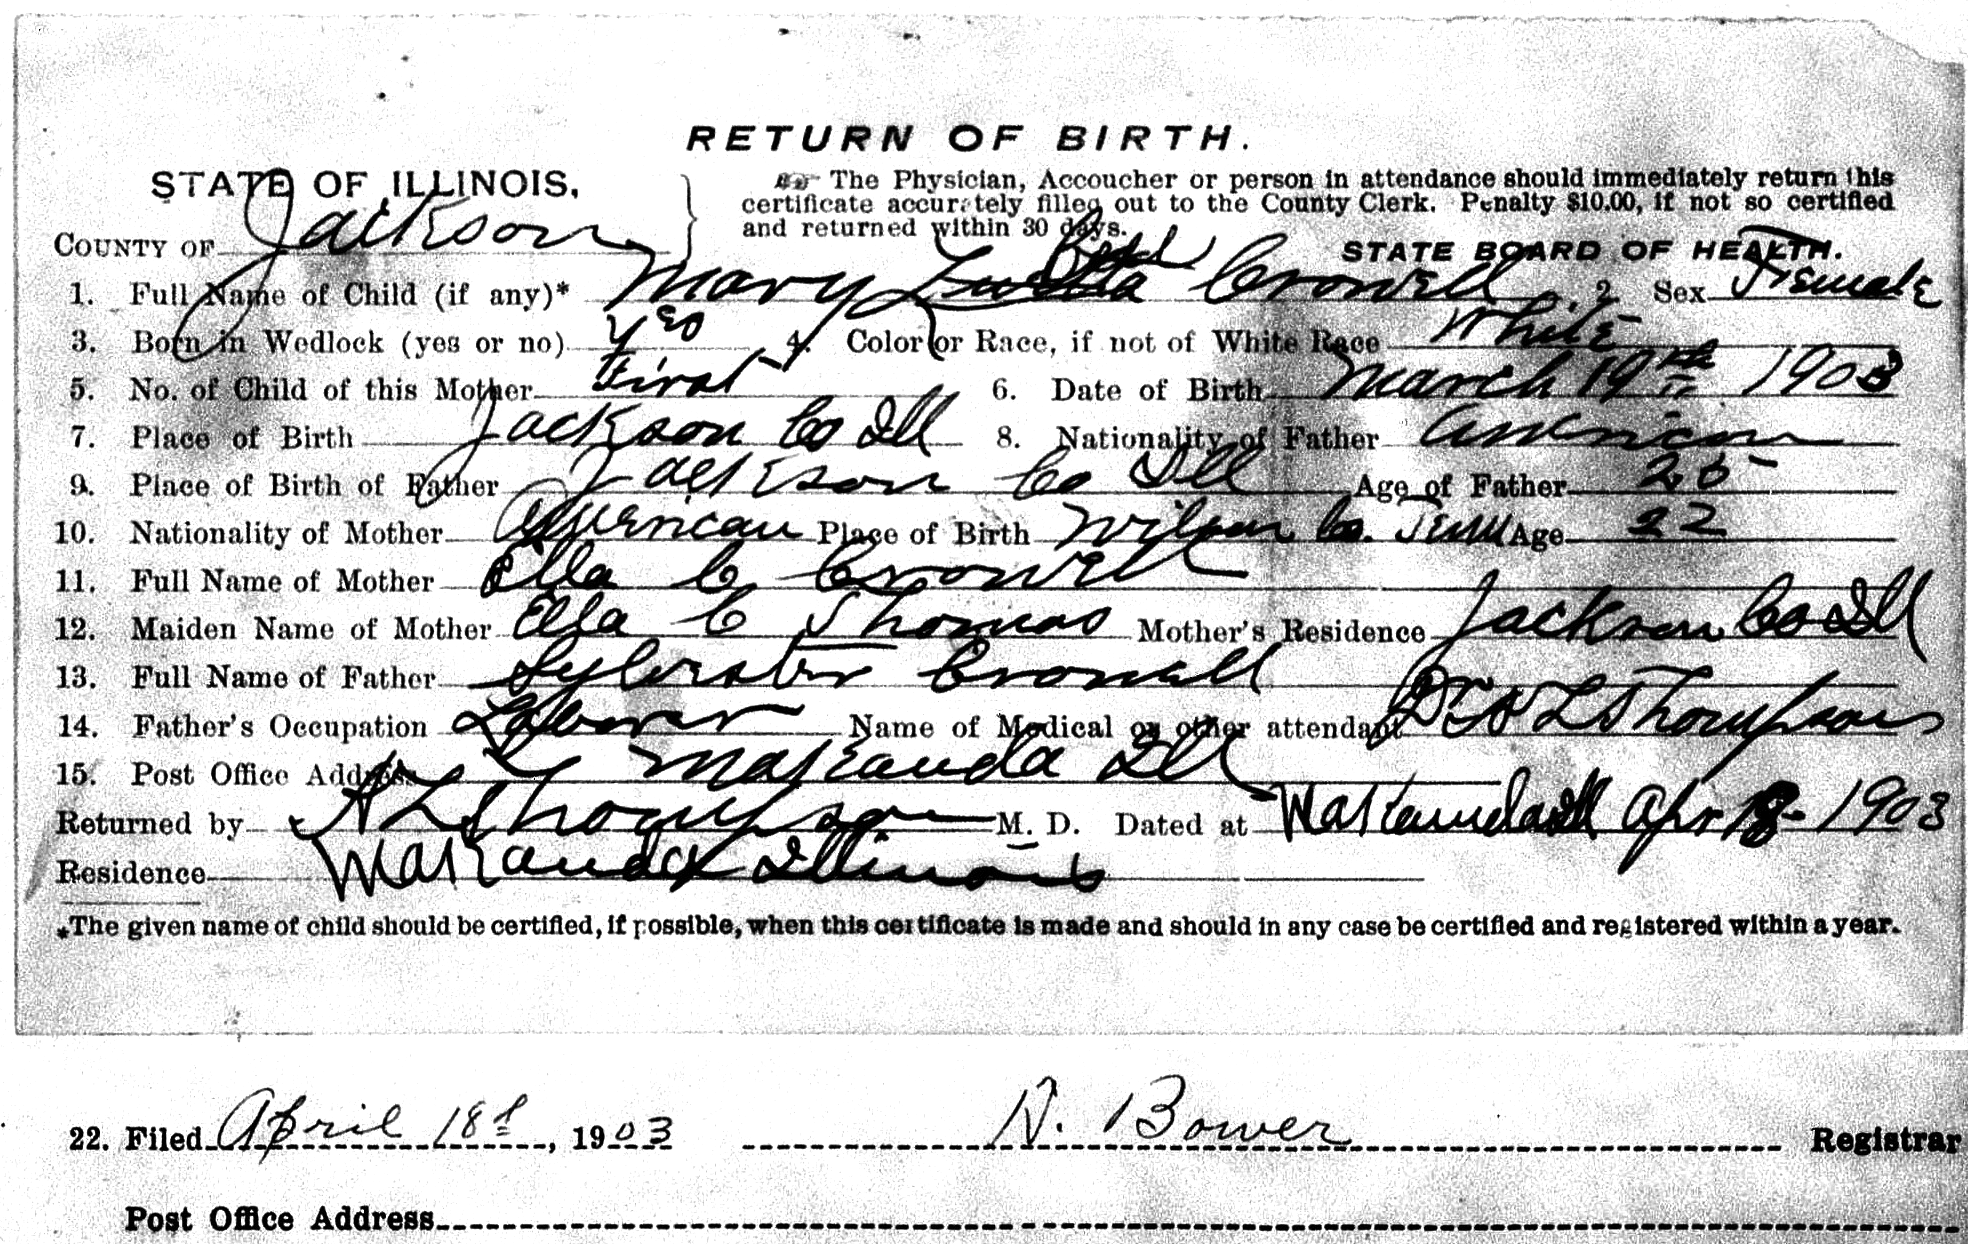 RETURN OF BIRTH.
STATE OF ILLINOIS,
The Physician, Accoucher or person in attendance should immediately return this
certificate accurately filled out to the County Clerk. Penalty $10.00, if not so certified
and returned within 30 days.
COUNTY OF Jackson
STATE BOARD OF HEALTH.
1. Full Name of Child (if any)* Mary Crowell 2 Sex Female
3. Born in Wedlock (yes or no) Yes 4. Color or Race, if not of White Race White
5. No. of Child of this Mother First 6. Date of Birth March 19th 1903
7. Place of Birth Jackson Co Ill 8. Nationality of Father American
9. Place of Birth of Father Jackson Co Ill Age of Father 25
10. Nationality of Mother American Place of Birth Wilson Co. Tenn Age 22
11. Full Name of Mother Ella C Crowell
12. Maiden Name of Mother Ella C Thomas Mother's Residence Jackson Co Ill
13. Full Name of Father Sylvester Crowell
14. Father's Occupation Laborer Name of Medical or other attendant Dr. A L Thompson
15. Post Office Address Makanda Ill
Returned by A L Thompson M. D. Dated at Makanda Ill Apr 1903
Residence Makanda Illinois
*The given name of child should be certified, if possible, when this certificate is made and should in any case be certified and registered within a year.
22. Filed April 18th, 1903 Bower Registrar
Post Office Address